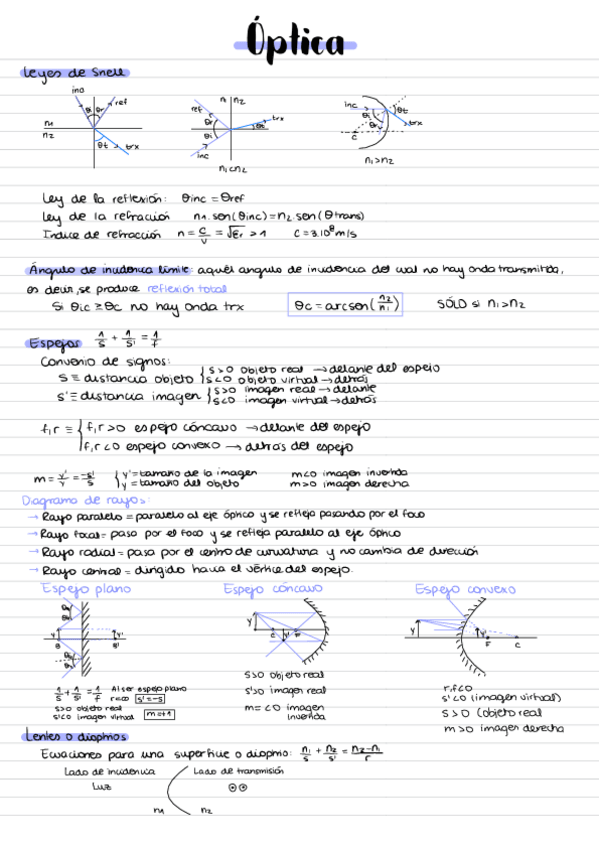 Óptica
Leyes de Snell
inc ref n1 n2 θi θr θt trx
ref n1 n2 θr θi θt trx inc n1<n2
inc θi θr θt trx c n1>n2
Ley de la reflexión: θinc = θref
Ley de la refracción n1.sen(θinc)=n2.sen(θtrans)
Indice de refracción n = c/v = √εr > 1 C=3.10⁸m/s
Ángulo de incidencia límite: aquél angulo de incidencia del cual no hay onda transmitida,
es decir, se produce reflexión total
Si θic ≥ θc no hay onda trx θc = arcsen(n2/n1) SÓLO si n1>n2
Espejos 1/s + 1/s' = 1/f
Convenio de signos:
S ≡ distancia objeto { s>0 objeto real → delante del espejo
s<0 objeto virtual → detrás
s' ≡ distancia imagen { s>0 imagen real → delante
s<0 imagen virtual → detrás
f,r ≡ { f,r >0 espejo cóncavo → delante del espejo
f,r <0 espejo convexo → detrás del espejo
m = y'/y = -s'/s { y' = tamaño de la imagen m<0 imagen invertida
y = tamaño del objeto m>0 imagen derecha
Diagrama de rayos:
→ Rayo paralelo = paralelo al eje óptico y se refleja pasando por el foco
→ Rayo focal = pasa por el foco y se refleja paralelo al eje óptico
→ Rayo radial = pasa por el centro de curvatura y no cambia de dirección
→ Rayo central = dirigido hacia el vértice del espejo.
Espejo plano Espejo cóncavo Espejo convexo
y y' θr θi
y c y' F
y y' F c
1/s + 1/s' = 1/f Al ser espejo plano
r=∞ s'=-s
s>0 objeto real
s'<0 imagen virtual m=+1
s>0 objeto real
s'>0 imagen real
m = <0 imagen
invertida
r,f<0
s'<0 (imagen virtual)
s>0 (objeto real
m>0 imagen derecha
Lentes o dioptrios
Ecuaciones para una superficie o dioptrio: n1/s + n2/s' = n2-n1/r
Lado de incidencia Lado de transmisión
Luz
n1 n2